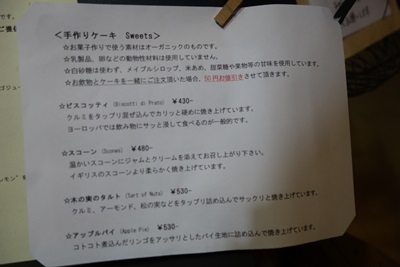 ＜手作りケーキ Sweets＞
☆お菓子作りで使う素材はオーガニックのものです。
☆乳製品、卵などの動物性材料は使用していません。
☆白砂糖は使わず、メイプルシロップ、米あめ、甜菜糖や果物等の甘味を使用しています。
☆お飲物とケーキを一緒にご注文頂いた場合、50円お値引きさせて頂きます。
☆ビスコッティ (Biscotti di Prato) ￥430-
クルミをタップリ混ぜ込んでカリッと硬めに焼き上げています。
ヨーロッパでは飲み物にサッと浸して食べるのが一般的です。
☆スコーン (Scones) ￥480-
温かいスコーンにジャムとクリームを添えてお召し上がり下さい。
イギリスのスコーンより柔らかく焼き上げています。
☆木の実のタルト (Tart of Nuts) ￥530-
クルミ、アーモンド、松の実などをタップリ詰め込んでサックリと焼き上げています。
☆アップルパイ (Apple Pie) ￥530-
コトコト煮込んだリンゴをアッサリとしたパイ生地に詰め込んで焼き上げています。